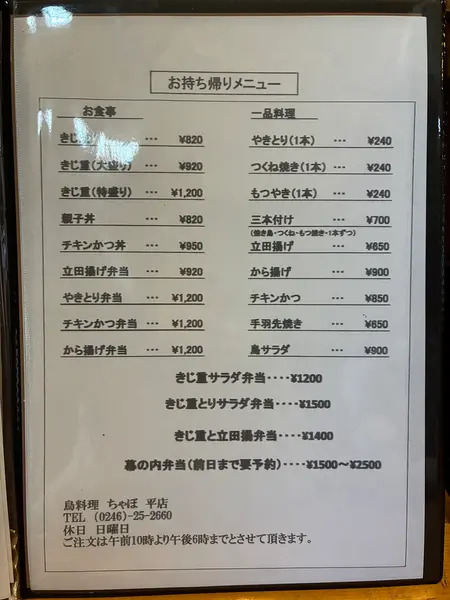 お持ち帰りメニュー
お食事
きじ重 ・・・ ¥820
きじ重(大盛り) ・・・ ¥920
きじ重(特盛り) ・・・ ¥1,200
親子丼 ・・・ ¥820
チキンかつ丼 ・・・ ¥950
立田揚げ弁当 ・・・ ¥920
やきとり弁当 ・・・ ¥1,200
チキンかつ弁当 ・・・ ¥1,200
から揚げ弁当 ・・・ ¥1,200
一品料理
やきとり(1本) ・・・ ¥240
つくね焼き(1本) ・・・ ¥240
もつやき(1本) ・・・ ¥240
三本付け ・・・ ¥700
(焼き鳥・つくね・もつ焼き・1本ずつ)
立田揚げ ・・・ ¥650
から揚げ ・・・ ¥900
チキンかつ ・・・ ¥850
手羽先焼き ・・・ ¥650
鳥サラダ ・・・ ¥900
きじ重サラダ弁当・・・・¥1200
きじ重とりサラダ弁当・・・・¥1500
きじ重と立田揚弁当・・・・¥1400
幕の内弁当(前日まで要予約)・・・・¥1500～¥2500
鳥料理 ちゃぼ 平店
TEL (0246)-25-2660
休日 日曜日
ご注文は午前10時より午後6時までとさせて頂きます。